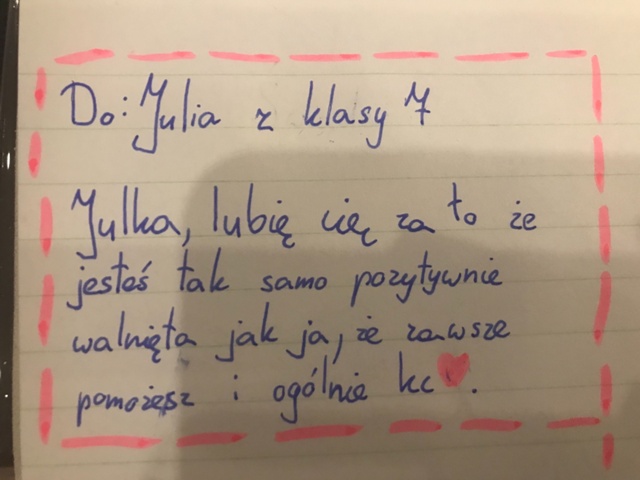 Do: Julia z klasy 7
Julka, lubię cię za to że
jesteś tak samo pozytywnie
walnięta jak ja, że zawsze
pomożesz i ogólnie kc ♥.